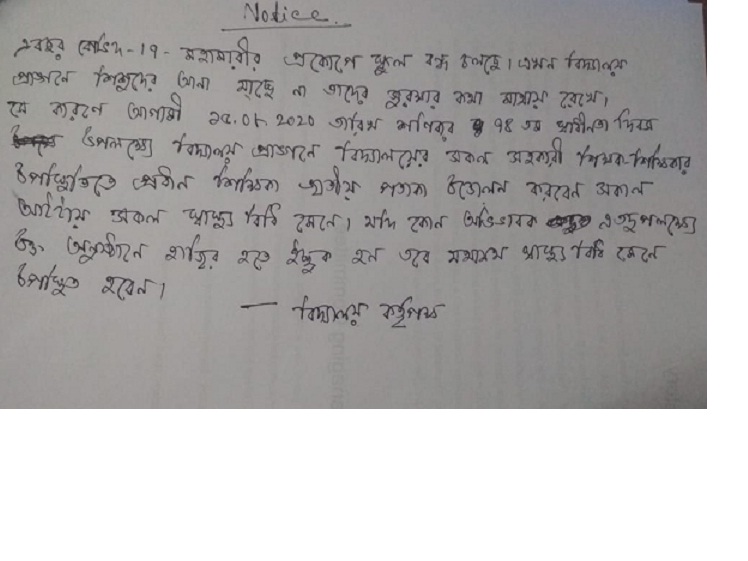 Notice
এবছর কোভিদ-19- মহামারীর প্রকোপে স্কুল বন্ধ চলছে। এখন বিদ্যালয়
প্রাঙ্গনে শিশুদের আনা যাচ্ছে না তাদের সুরক্ষার কথা মাথায় রেখে।
সে কারণে আগামী 2020 তারিখ শনিবার ৭৪ তম স্বাধীনতা দিবস
উপলক্ষ্যে বিদ্যালয় প্রাঙ্গনে বিদ্যালয়ের সকল সহকারী শিক্ষক-শিক্ষিকার
উপস্থিতিতে প্রধান শিক্ষিকা জাতীয় পতাকা উত্তোলন করবেন সকাল
সকল স্বাস্থ্য বিধি মেনে। যদি কোন অভিভাবক এতদুপলক্ষ্যে
উক্ত অনুষ্ঠানে হাজির হতে ইচ্ছুক হন তবে যথাযথ স্বাস্থ্য বিধি মেনে
উপস্থিত হবেন।
— বিদ্যালয় কর্তৃপক্ষ